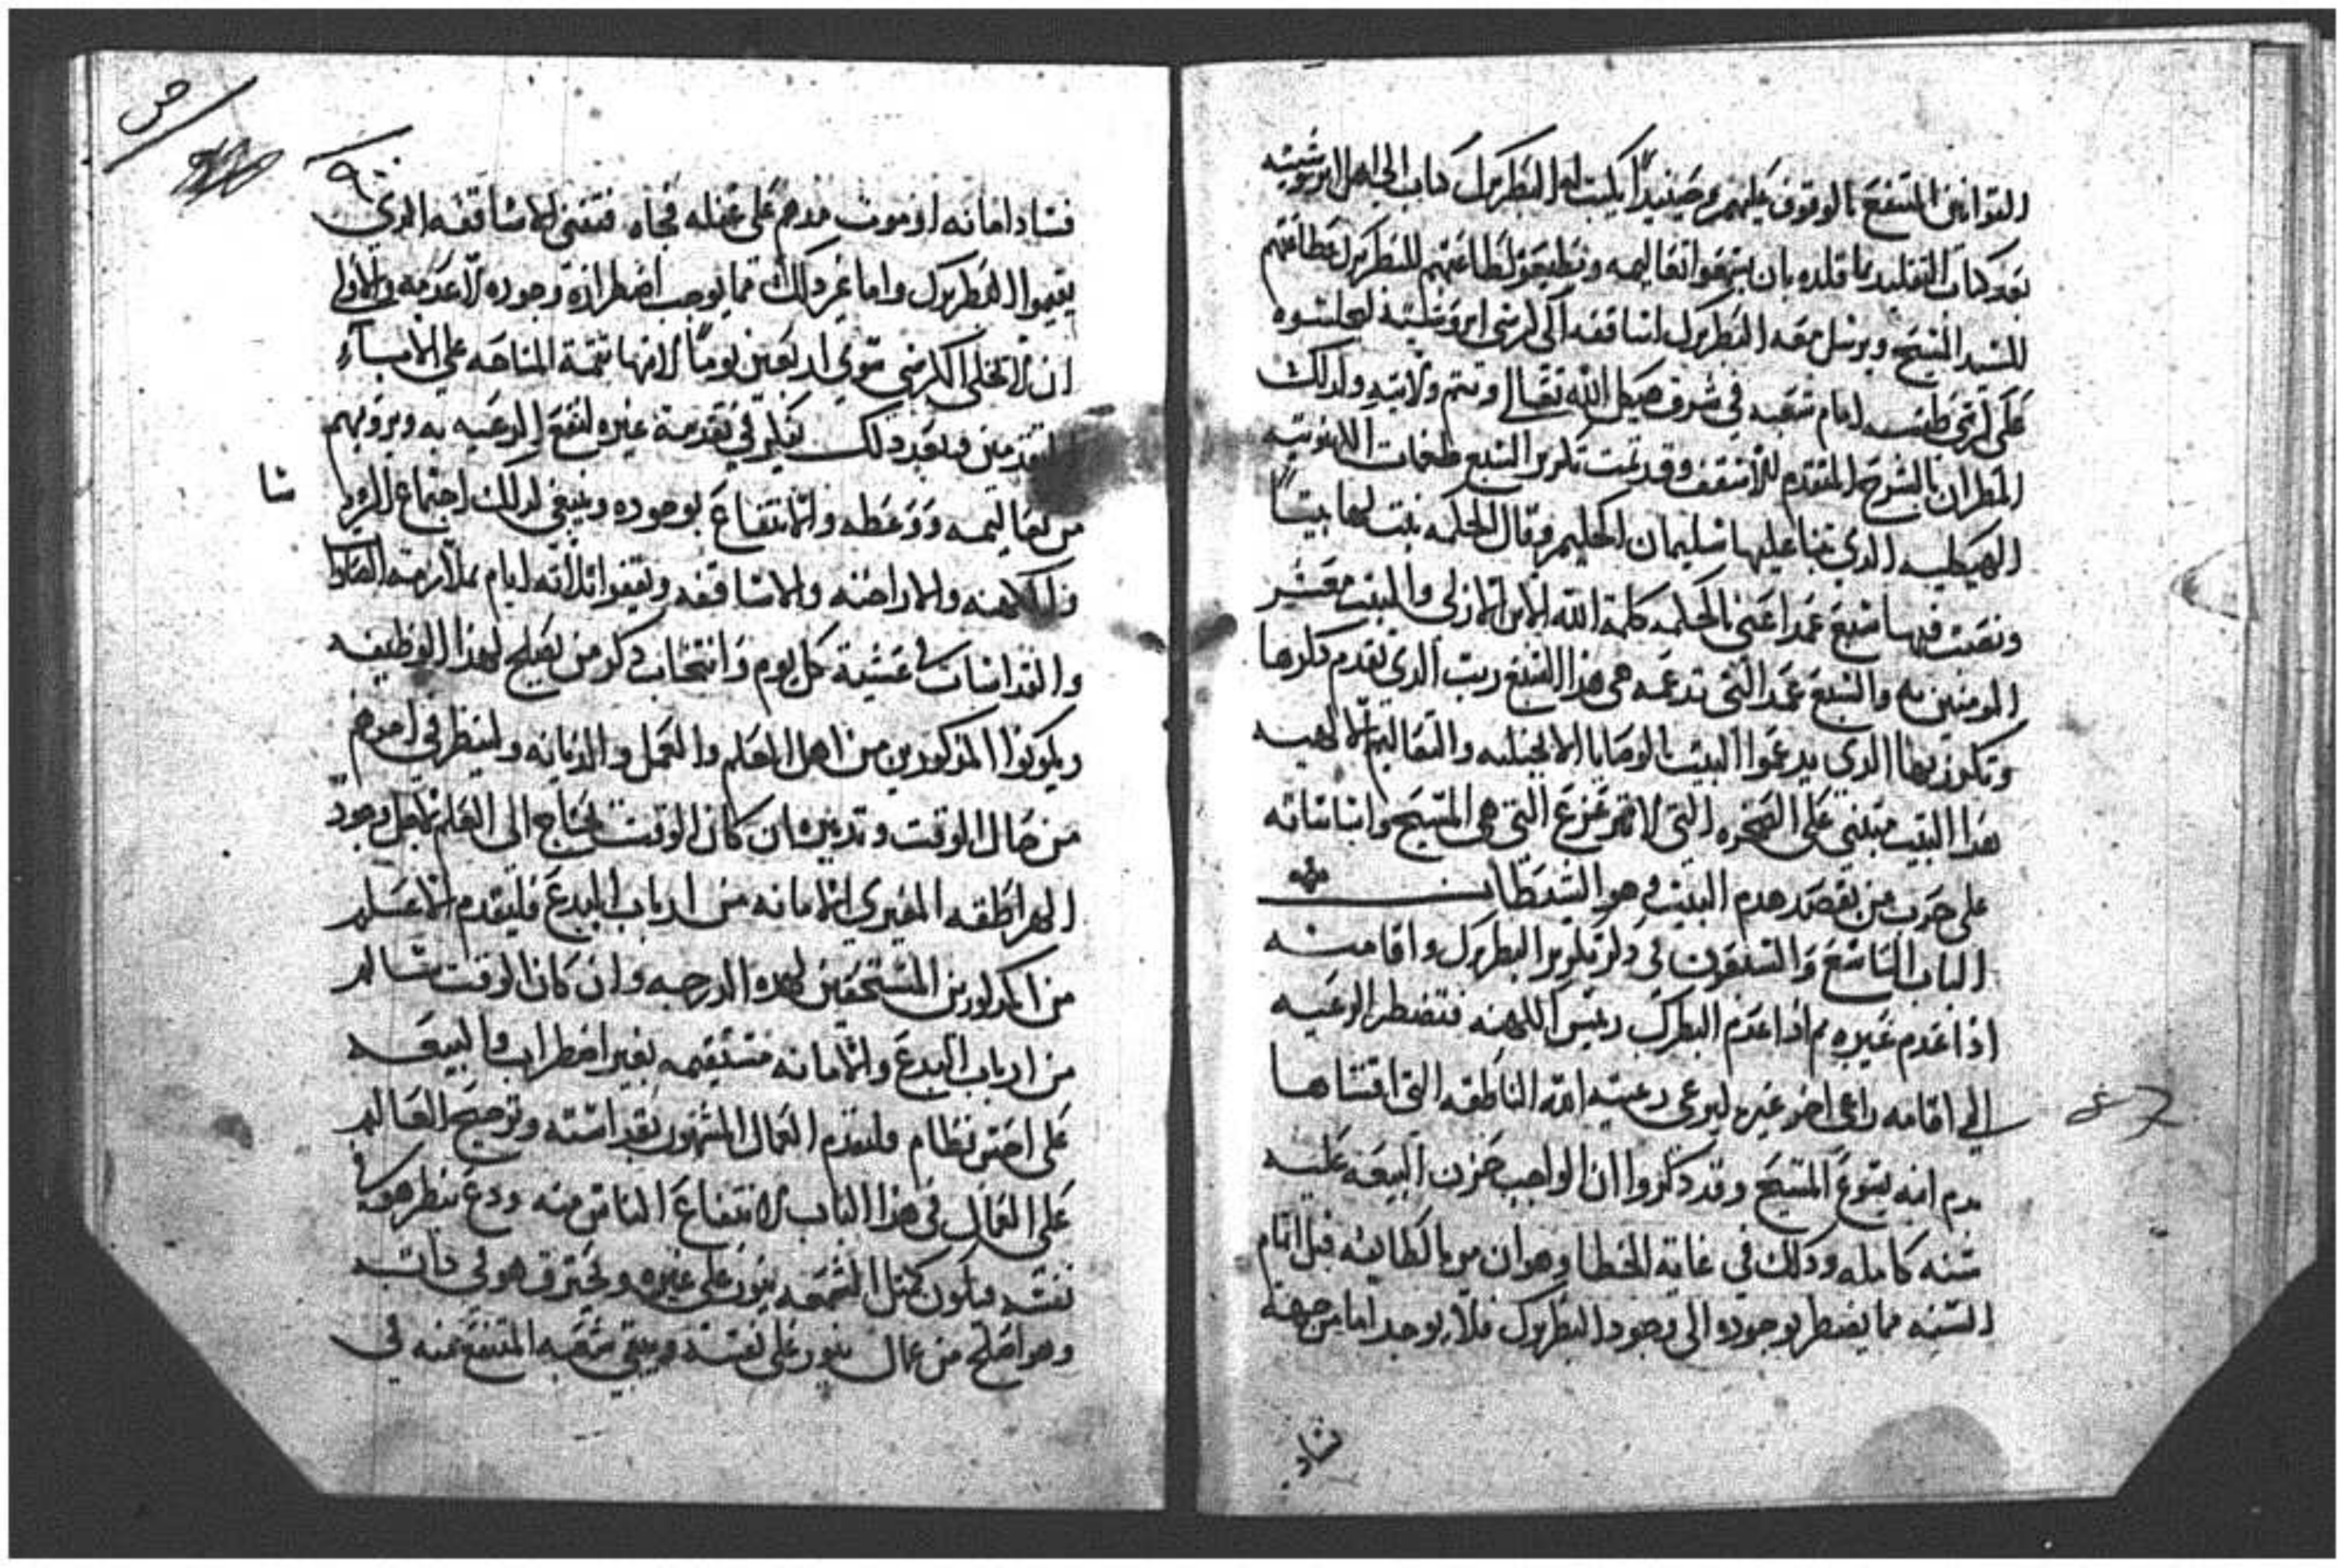 القوانين المنتفع بالوقوف عليهم وحينيداً يكتب له البطريرك كتاب الي اهل ابروشيته
بعد كتاب التقليد بما قلده بان يسمعوا تعاليمه ويطيعوه لطاعتهم للبطريرك كطاعتهم
للسيد المسيح ويرسل معه البطريرك اساقفه الي كرسي ابروشيته ليجلسوه
على كرسي امام شعبه في شرف هيكل الله تعالي وتتم ولايته وكدلك
المطران بالشرح المتقدم للاسقف وقد تمت تكريز السبع طغمات اللاهوتيه
الدي تنبا عليها سليمان الحكيم وقال الحكمه بنت لها بيتاً
ونصبت فيها سبع عمدا عني بالحكمه كلمة الله الابن الازلي والبيت معشر
المومنين به والسبع عمد التي تدعمه هي هدا السبع رتب الدي تقدم دكرها
وتكريزها الدي يدعموا البيت بالوصايا الانجيليه والتعاليم الالهيه
هدا البيت مبتني على الصخره التي لا تتزعزع التي هي المسيح واساساته
على حرب من يقصد هدم البيت وهو الشيطان
الباب التاسع والتسعون في دكر تكريز البطريرك واقامته
اذا عدم غيره ثم اذا عدم البطرك رييس الكهنه فتضطر الرعيه
الي اقامه راعي اخر غيره ليرعى رعيته امة الناطقه التي اقتناها
بدم ابنه يسوع المسيح وقد دكروا ان الواجب حزن البيعه عليه
سنه كامله ودلك في غاية الخطا وهو ان من بالطايفه قبل اتمام
السنه مما يضطر بوجوده الى وجود البطريرك فلا يوجد اما من جهة
فساد
ش
ص
٩٠
فساد امانه او موت مدهم على غفله فجاه فتفني الاساقفه الدي
يقيموا البطريرك واما غير دلك مما يوجب اضطراره وجوده لا عدمه والاولي
ان لا يخلي الكرسي سوي اربعين يوماً لانها تتمة المناحه علي الابآء
المتقدمين وبعد دلك يفكر في تقدمة غيره لنفع الرعيه به ويرويهم
من تعاليمه ووعظه والانتفاع بوجوده وينبغي لدلك اجتماع الروسا
والكهنه والاراخنه والاساقفه ويقفوا ثلاثه ايام بملازمة الصلوا
والقداسات في عشية كل يوم وانتخاب دكر من يصلح لهدا الوظيفه
ويكونوا المدكورين من اهل العلم والعمل والديانه ولينظر في امرهم
من حال الوقت وتدبيره ان كان الوقت يحتاج الى العلم لاجل وجود
الهراطقه المغيري الامانه من ارباب البدع فليقدم الاعلم
من المدكورين المستحقين لهده الدرجه وان كان الوقت سالم
من ارباب البدع والامانه مستقيمه بغير اضطراب والبيعه
على احسن نظام فليقدم العمال المشهور بقداسته وترجيح العالم
على العمال في هدا الباب لانتفاع الناس منه ودع ينظر هو في
نفسه فيكون كمثل الشمعه ينور على غيره ويحترق هو في داته
وهو اصلح من عمال ينور على نفسه ويبقي شعبه المنتفع منه في